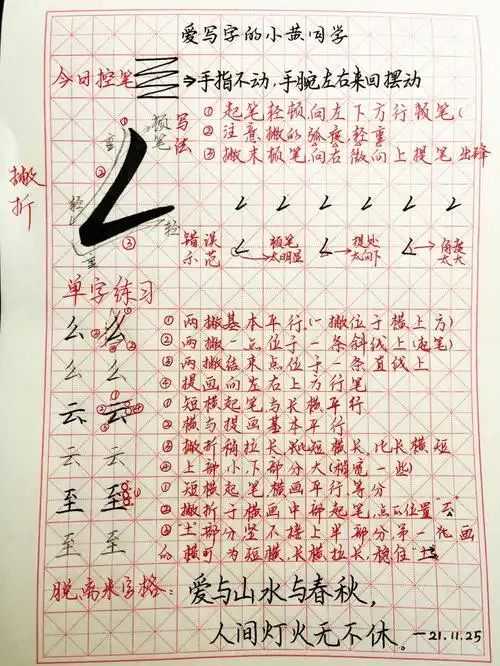 爱写字的小黄同学
今日控笔 →手指不动,手腕左右来回摆动
撇折
写法
①
顿笔
重
②
轻
重
③
轻
① 起笔轻顿向左下方行顿笔(
② 注意撇的弧度,轻重
③ 撇末顿笔向右微向上提笔出锋
错误示范
顿笔太明显
提处太向下
角度太大
单字练习
么 么 ① 两撇基本平行.(一撇位于横上方)
② 两撇一点位于一条斜线上(起笔)
么 么 ③ 两撇结束点位于一条直线上
④ 提画向左右上方行笔
云 云 ① 短横起笔与长横平行
② 横与提画基本平行
云 云 ③ 撇折稍拉长,比短横长,比长横短
④ 上部小,下部分大(稍宽一些)
至 至 ① 短横起笔,横画平行,等分
② 撇折于横画中部起笔,点的位置"云"
至 至 ③ "土"部分竖不接上半部分,第一
的横可为短横,长横拉长,稳住"土"
脱离米字格: 爱与山水与春秋,
人间灯火无不休。
—21.11.25